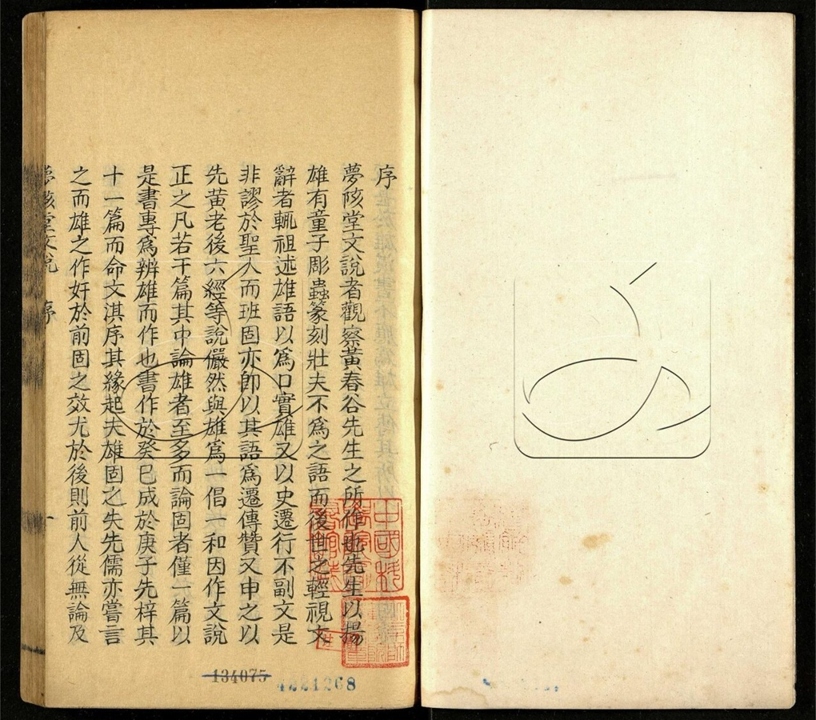 序
夢陔堂文說者觀察黃春谷先生之所作也先生以揚
雄有童子彫蟲篆刻壯夫不為之語而後世之輕視文
辭者輒祖述雄語以為口實雄又以史遷行不副文是
非謬於聖人而班固亦卽以其語為遷傳贊又申之以
先黃老後六經等說儼然與雄為一倡一和因作文說
正之凡若干篇其中論雄者至多而論固者僅一篇以
是書專為辨雄而作也書作於癸巳成於庚子先梓其
十一篇而命文淇序其緣起夫雄固之失先儒亦嘗言
之而雄之作奸於前固之效尤於後則前人從無論及
夢陔堂文說 序 一
134075